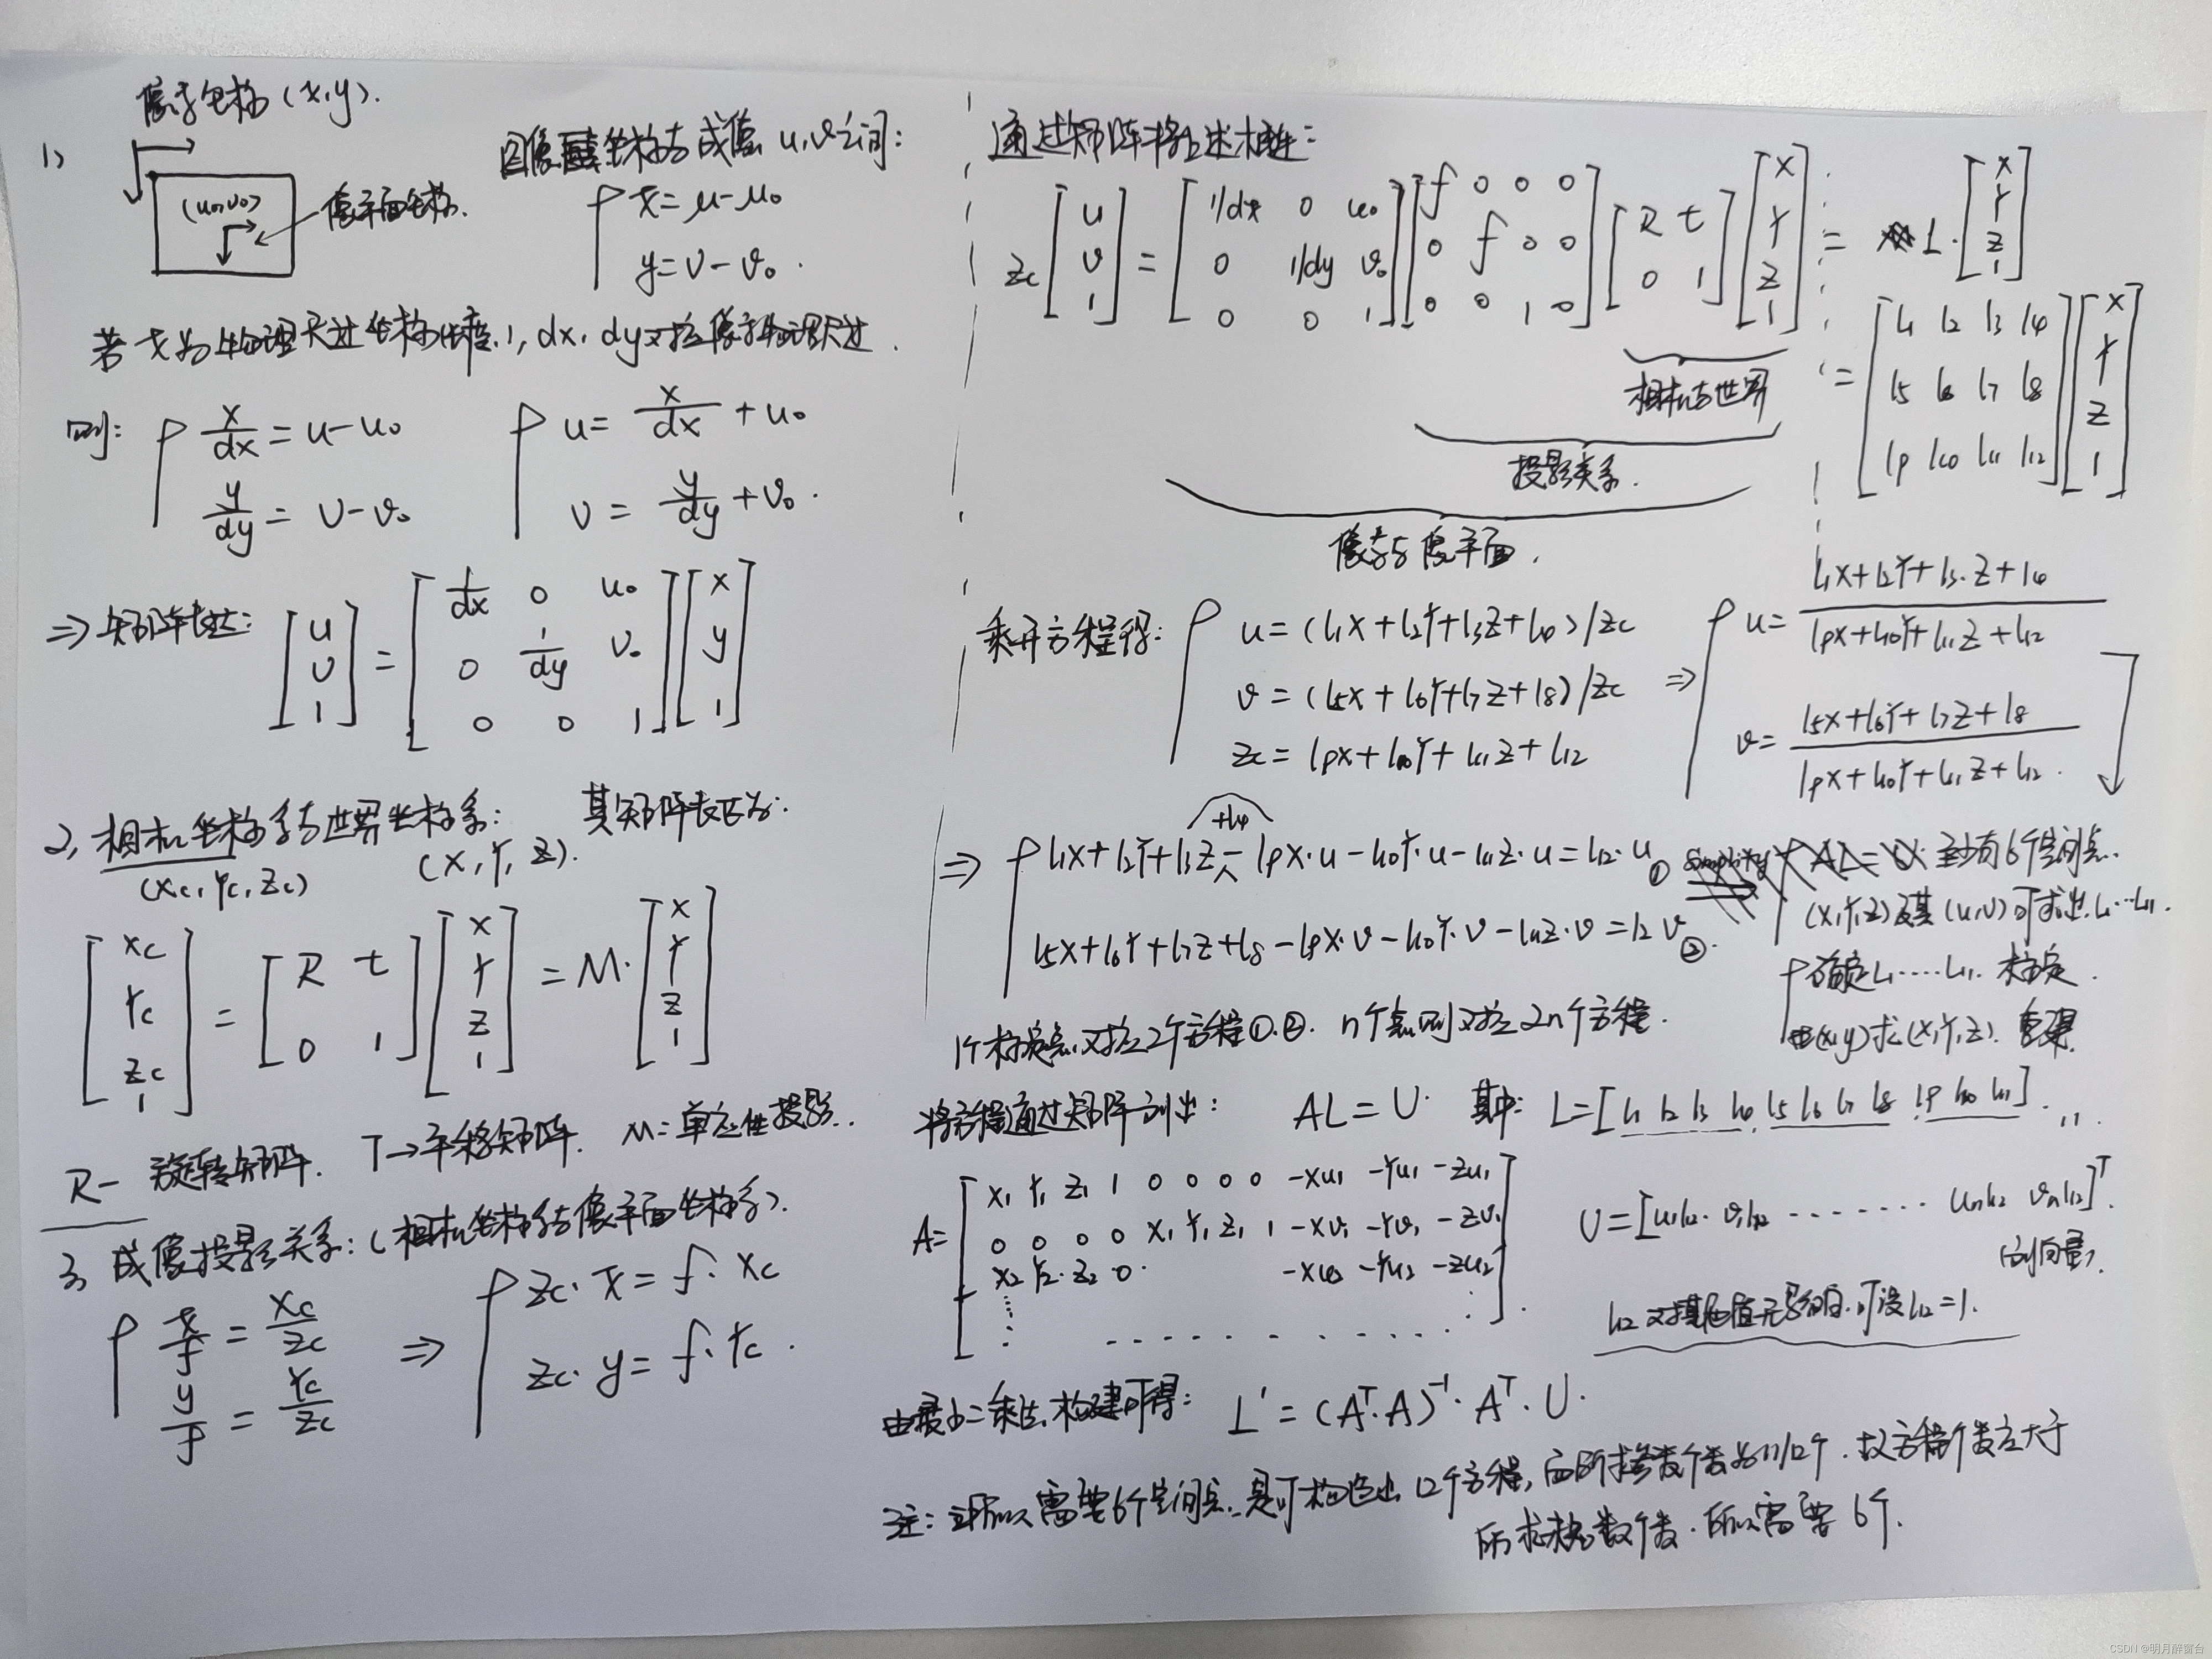 像素坐标 (x,y).
1)
(u0,v0)
像平面坐标.
图像坐标与成像 u,v之间:
x = u-u0
y = v-v0 .
若x为物理尺寸坐标 dx, dy对应像素物理尺寸.
则: x/dx = u-u0
y/dy = v-v0
u = x/dx + u0
v = y/dy + v0 .
⇒ 矩阵表达: [u v 1] = [1/dx 0 u0; 0 1/dy v0; 0 0 1] [x y 1]
2, 相机坐标系与世界坐标系: 其矩阵表达为:
(Xc, Yc, Zc) (X, Y, Z).
[Xc Yc Zc 1] = [R t; 0 1] [X Y Z 1] = M· [X Y Z 1]
R- 旋转矩阵. T→平移矩阵. M: 单应性投影.
3, 成像投影关系: (相机坐标系与像平面坐标系).
x/f = Xc/Zc
y/f = Yc/Zc
⇒ Zc· x = f· Xc
Zc· y = f· Yc .
通过矩阵将上述相连:
Zc [u v 1] = [1/dx 0 u0; 0 1/dy v0; 0 0 1] [f 0 0 0; 0 f 0 0; 0 0 1 0] [R t; 0 1] [X Y Z 1] = L· [X Y Z 1]
= [l1 l2 l3 l4; l5 l6 l7 l8; l9 l10 l11 l12] [X Y Z 1]
相机与世界
投影关系.
像素与像平面.
乘开方程得: u = (l1X+l2Y+l3Z+l4)/Zc
v = (l5X+l6Y+l7Z+l8)/Zc
Zc = l9X+l10Y+l11Z+l12
⇒ u = (l1X+l2Y+l3·Z+l4)/(l9X+l10Y+l11Z+l12)
v = (l5X+l6Y+l7Z+l8)/(l9X+l10Y+l11Z+l12) .
+l4
⇒ l1X+l2Y+l3Z - l9X·u - l10Y·u - l11Z·u = l12·u ①
l5X+l6Y+l7Z+l8 - l9X·v - l10Y·v - l11Z·v = l12 v ② .
AL=U. 至少有6个空间点.
(X,Y,Z)及其(u,v)可求出 l1…l11.
确定l1····l11. 标定.
由(x,y)求(X,Y,Z). 重建.
1个标定点对应2个方程①.②. n个点则对应2n个方程.
将方程通过矩阵列出: AL = U. 其中: L=[l1 l2 l3 l4 l5 l6 l7 l8 l9 l10 l11]
A= [X1 Y1 Z1 1 0 0 0 0 -Xu1 -Yu1 -Zu1
0 0 0 0 X1 Y1 Z1 1 -Xv1 -Yv1 -Zv1
X2 Y2 Z2 0 -Xu2 -Yu2 -Zu2
U=[u1l12 v1l12 ······· unl12 vnl12]T.
(列向量).
l12对其他值无影响.可设l12=1.
由最小二乘法.构建可得: L' = (AT·A)-1·AT·U.
注: 之所以需要6个空间点.是可构造出12个方程, 而所求参数个数为11/12个. 故方程个数应大于
所求参数个数. 所以需要6个.
CSDN @明月醉窗台